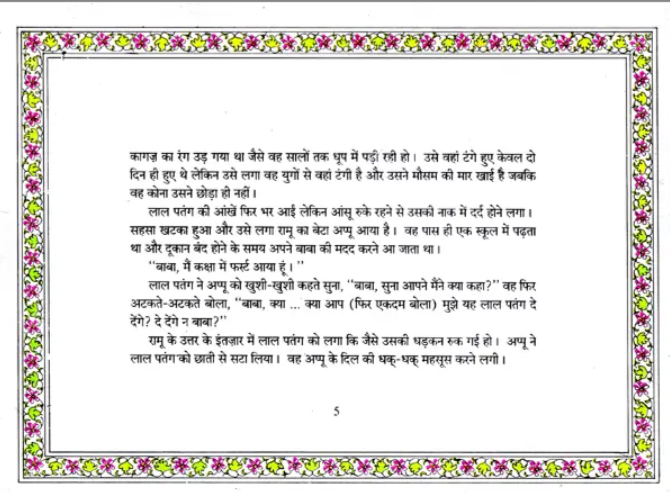 कागज़ का रंग उड़ गया था जैसे वह सालों तक धूप में पड़ी रही हो। उसे वहां टंगे हुए केवल दो
दिन ही हुए थे लेकिन उसे लगा वह युगों से वहां टंगी है और उसने मौसम की मार खाई है जबकि
वह कोना उसने छोड़ा ही नहीं।
लाल पतंग की आंखें फिर भर आईं लेकिन आंसू रुके रहने से उसकी नाक में दर्द होने लगा।
सहसा खटका हुआ और उसे लगा रामू का बेटा अप्पू आया है। वह पास ही एक स्कूल में पढ़ता
था और दूकान बंद होने के समय अपने बाबा की मदद करने आ जाता था।
“बाबा, मैं कक्षा में फर्स्ट आया हूं।”
लाल पतंग ने अप्पू को खुशी-खुशी कहते सुना, “बाबा, सुना आपने मैंने क्या कहा?” वह फिर
अटकते-अटकते बोला, “बाबा, क्या ... क्या आप (फिर एकदम बोला) मुझे यह लाल पतंग दे
देंगे? दे देंगे न बाबा?”
रामू के उत्तर के इंतज़ार में लाल पतंग को लगा कि जैसे उसकी धड़कन रुक गई हो। अप्पू ने
लाल पतंग को छाती से सटा लिया। वह अप्पू के दिल की धक्-धक् महसूस करने लगी।
5